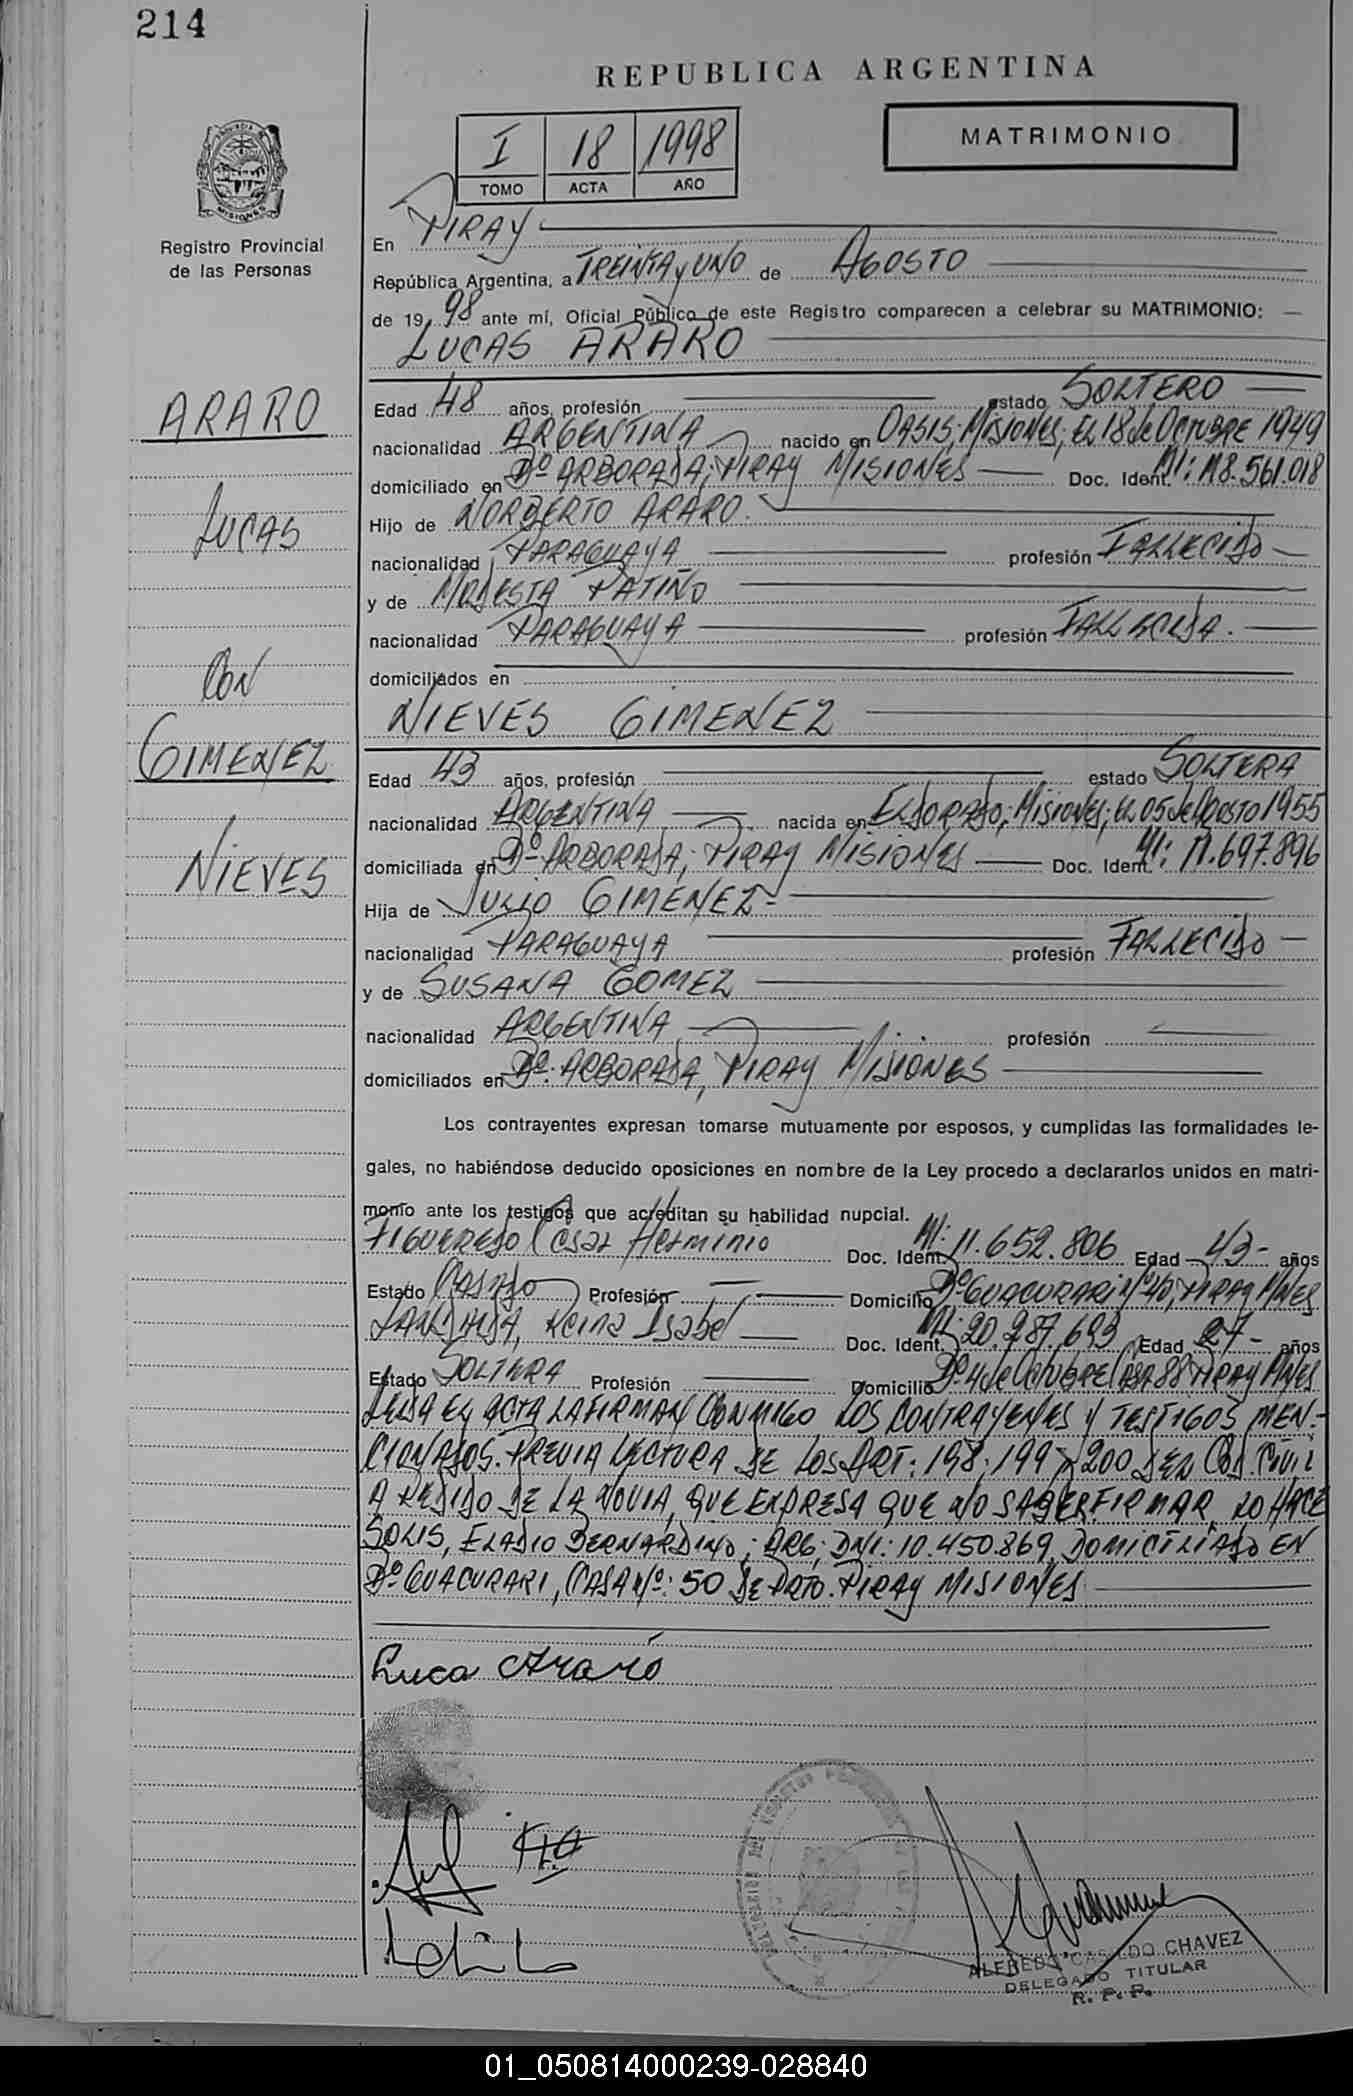 214
REPUBLICA ARGENTINA
I 18 1998
TOMO ACTA AÑO
MATRIMONIO
PROVINCIA DE MISIONES
Registro Provincial
de las Personas
En PIRAY
República Argentina, a TREINTA y UNO de AGOSTO
de 19 98 ante mí, Oficial Público de este Registro comparecen a celebrar su MATRIMONIO:
LUCAS ARARO
ARARO
LUCAS
CON
GIMENEZ
NIEVES
Edad 48 años, profesión estado SOLTERO
nacionalidad ARGENTINA nacido en OASIS; Misiones; EL 18 de OCTUBRE 1949
domiciliado en Bº ARBORADA; PIRAY MISIONES Doc. Ident. MI: M8.561.018
Hijo de NORBERTO ARARO.
nacionalidad PARAGUAYA profesión FALLECIDO
y de MODESTA PATIÑO
nacionalidad PARAGUAYA profesión FALLECIDA.
domiciliados en
NIEVES GIMENEZ
Edad 43 años, profesión estado SOLTERA
nacionalidad ARGENTINA nacida en ELDORADO; Misiones; EL 05 de Agosto 1955
domiciliada en Bº ARBORADA; PIRAY MISIONES Doc. Ident. MI: 11.697.896
Hija de JULIO GIMENEZ
nacionalidad PARAGUAYA profesión FALLECIDO
y de SUSANA GOMEZ
nacionalidad ARGENTINA profesión
domiciliados en Bº. ARBORADA, PIRAY MISIONES
Los contrayentes expresan tomarse mutuamente por esposos, y cumplidas las formalidades le-
gales, no habiéndose deducido oposiciones en nombre de la Ley procedo a declararlos unidos en matri-
monio ante los testigos que acreditan su habilidad nupcial.
FIGUEREDO Cesar Herminio Doc. Ident. MI: 11.652.806 Edad 43- años
Estado CASADO Profesión Domicilio Bº GUACURARI Nº 40, PIRAY MNES
Reina Isabel Doc. Ident. MI: 20.287.693 Edad 27- años
Estado SOLTERA Profesión Domicilio Bº 4 de OCTUBRE CASA 88 PIRAY MNES
LEIDA EL ACTA LA FIRMAN CONMIGO LOS CONTRAYENTES Y TESTIGOS MEN-
CIONADOS. PREVIA LECTURA DE LOS ART: 198, 199 y 200 DEL COD. CIVIL
A PEDIDO DE LA NOVIA, QUE EXPRESA QUE NO SABER FIRMAR, LO HACE
SOLIS, ELADIO BERNARDINO; ARG; DNI: 10.450.869, DOMICILIADO EN
Bº GUACURARI, CASA Nº: 50 DE PRTO. PIRAY MISIONES
Luca Araró
ALFREDO CASILDO CHAVEZ
DELEGADO TITULAR
R. P. P.
01_050814000239-028840